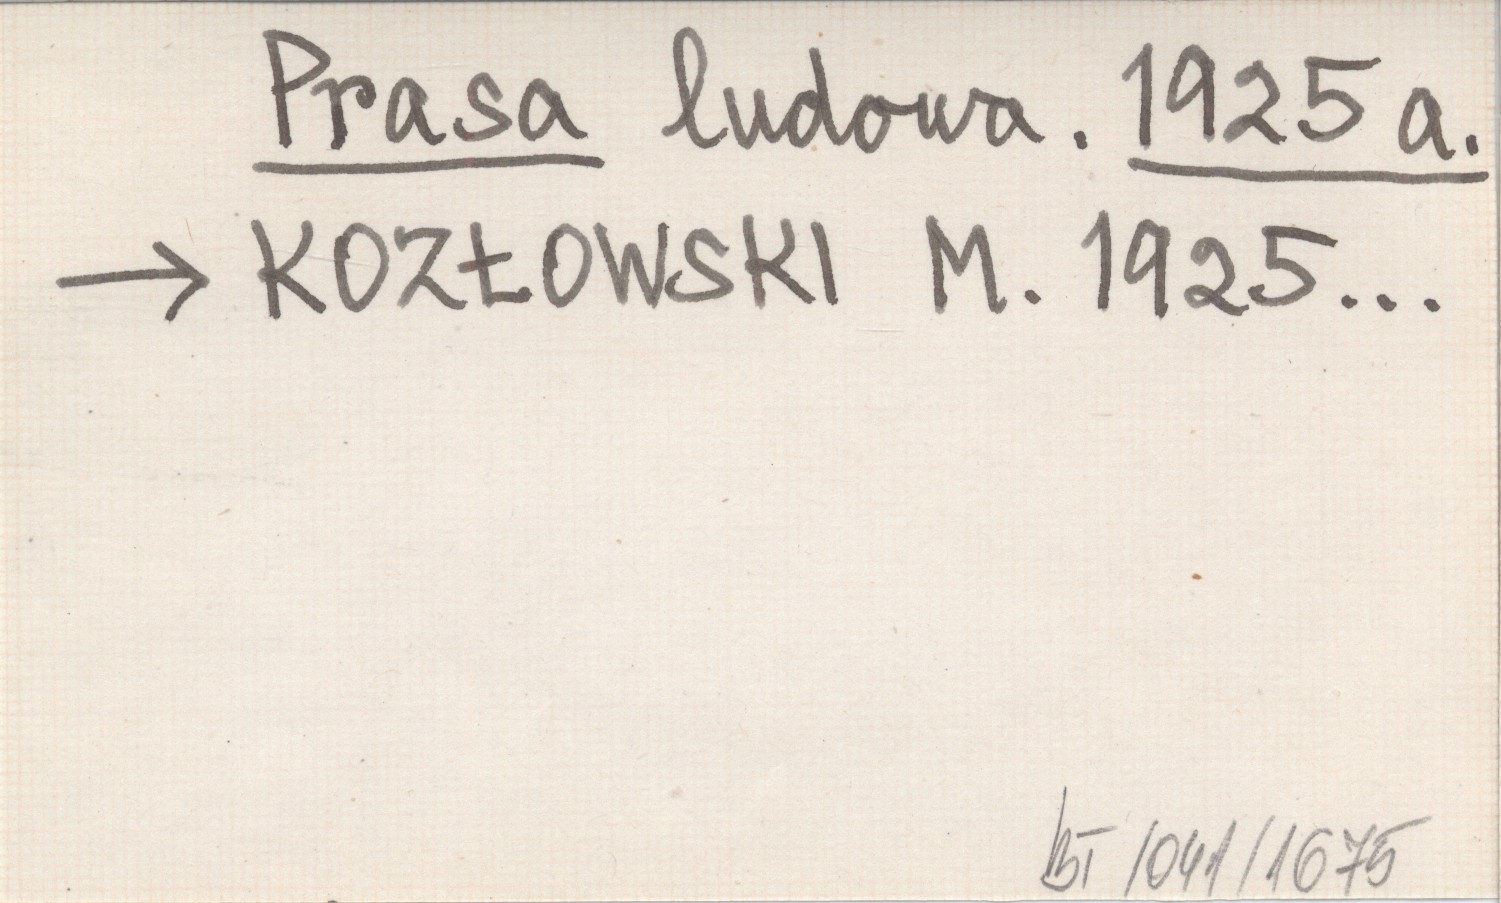 Prasa ludowa. 1925 a.
→ KOZŁOWSKI M. 1925...
BT /041/1675